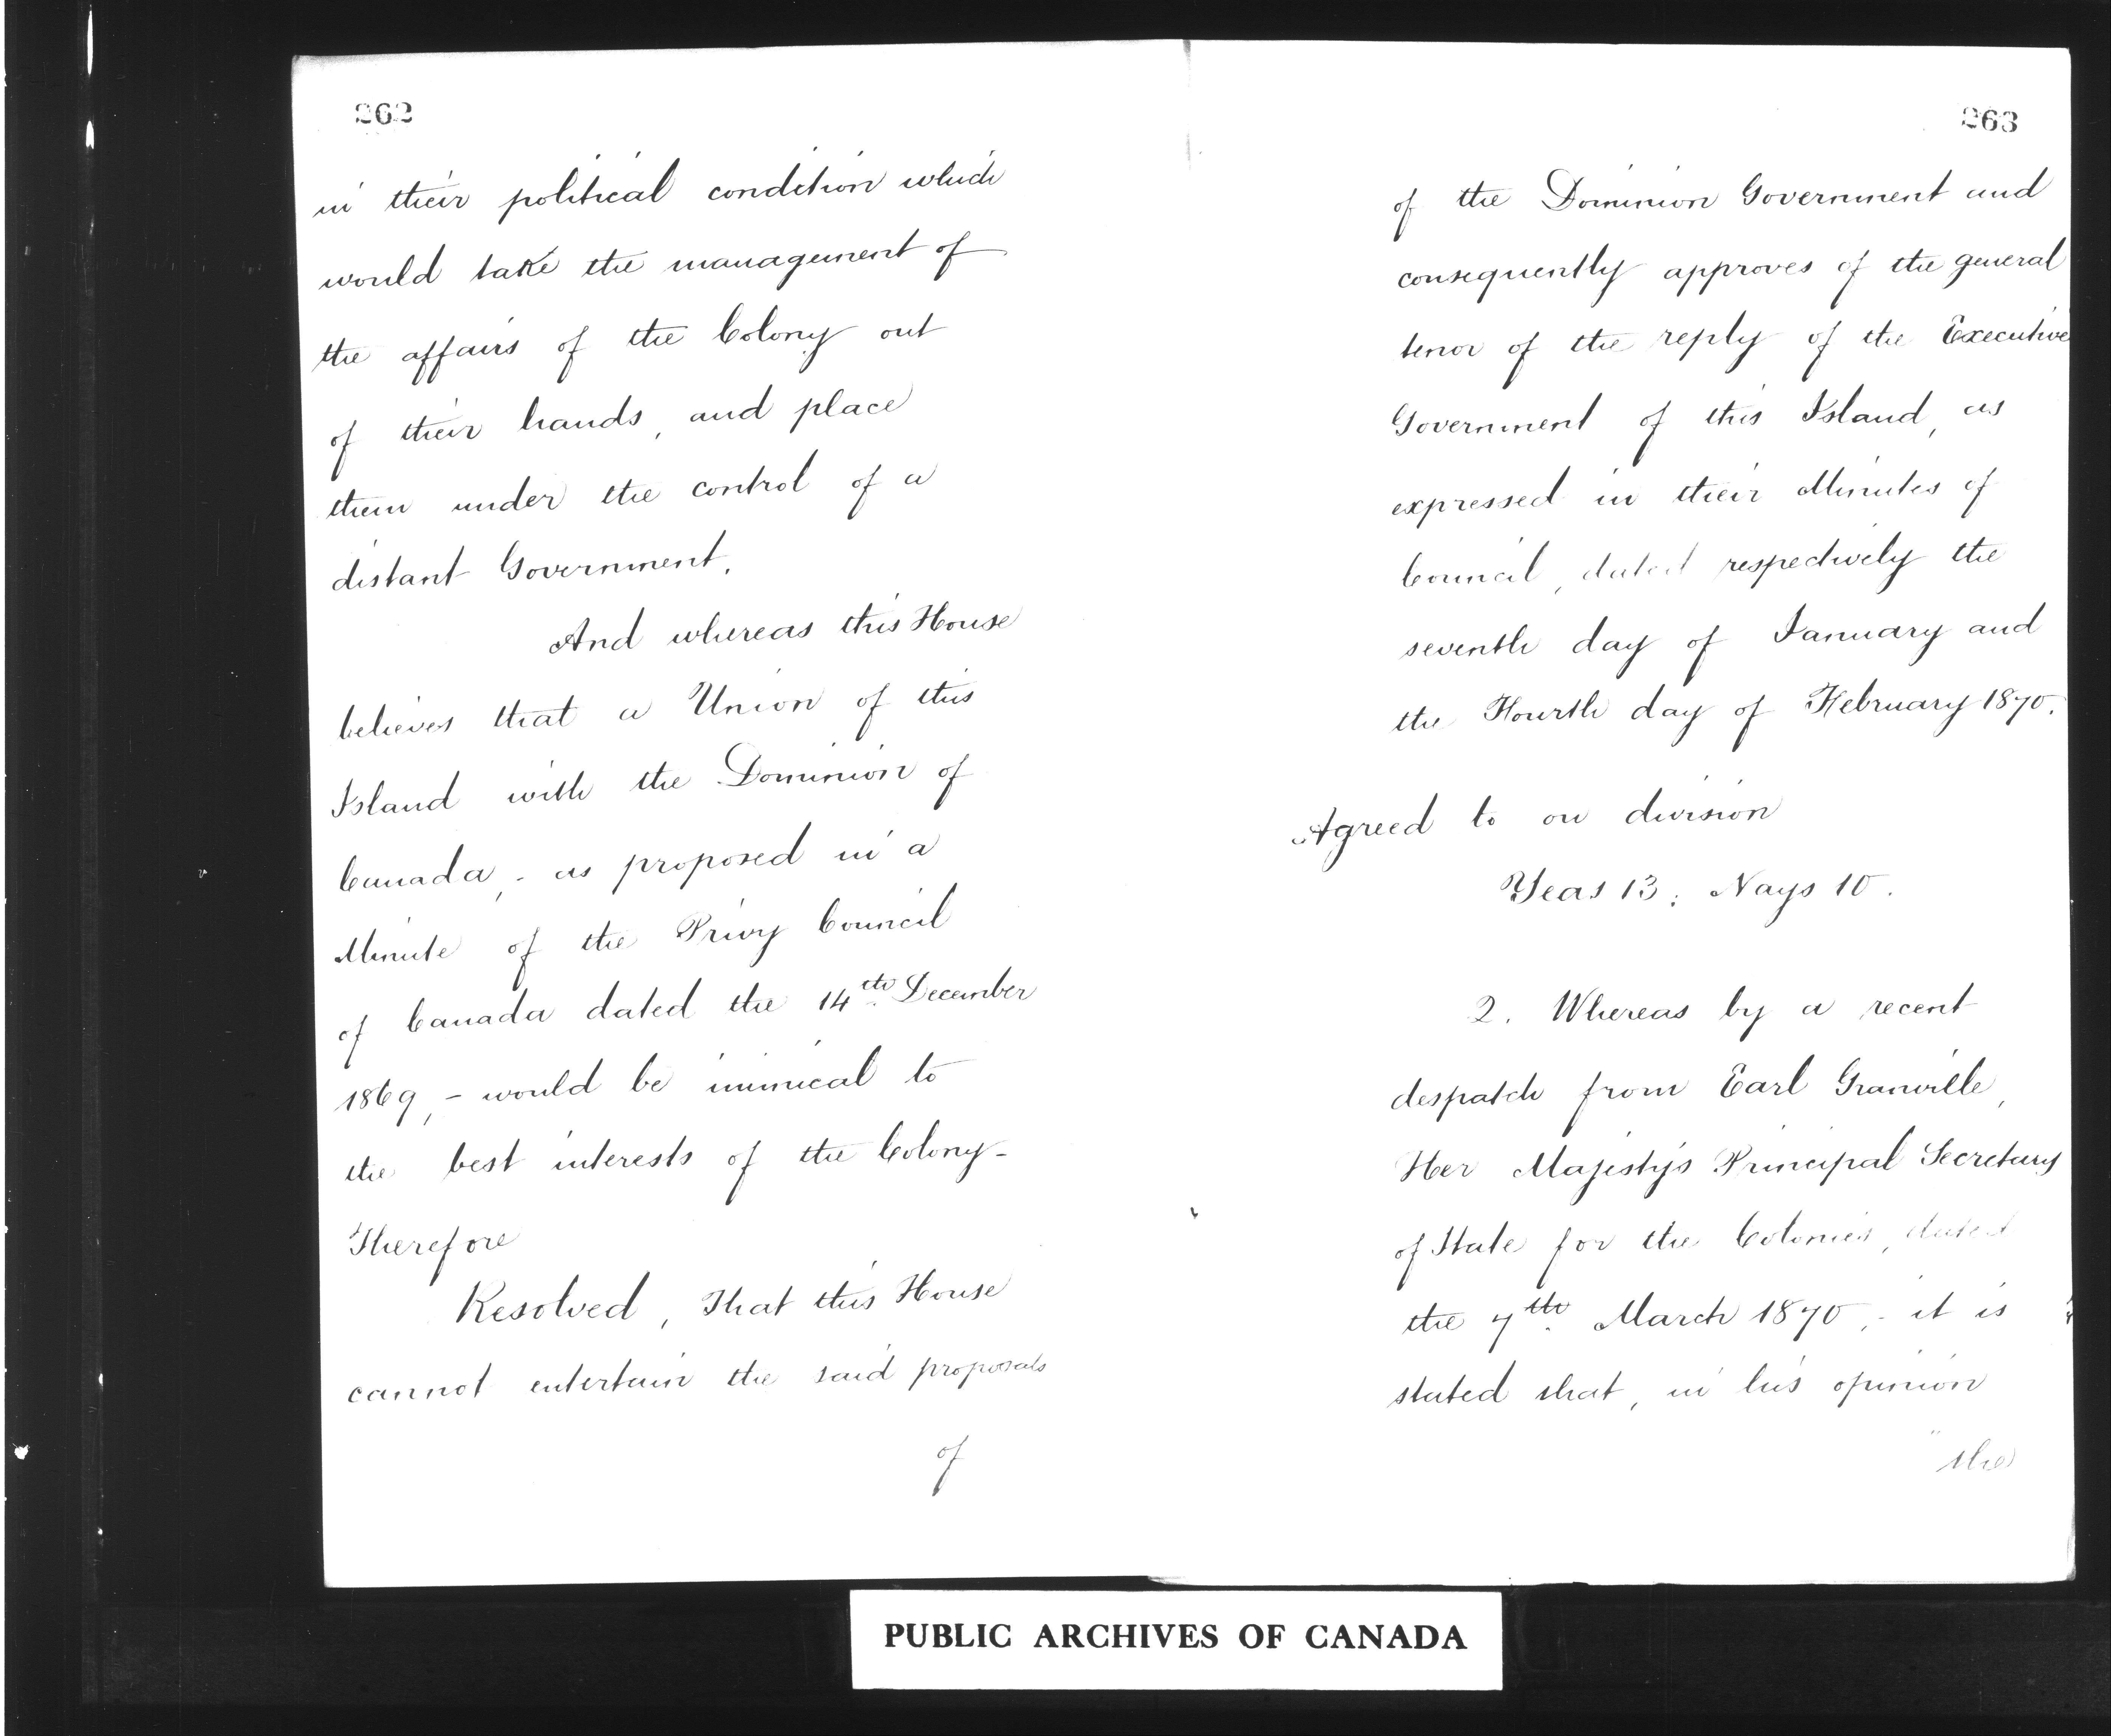 262
in their political condition which
would take the management of
the affairs of the Colony out
of their hands, and place
them under the control of a
distant Government.
And whereas this House
believes that a Union of this
Island with the Dominion of
Canada, - as proposed in a
Minute of the Privy Council
of Canada dated the 14th December
1869, - would be inimical to
the best interests of the Colony -
Therefore
Resolved, That this House
cannot entertain the said proposals
of
263
of the Dominion Government and
consequently approves of the general
tenor of the reply of the Executive
Government of this Island, as
expressed in their Minutes of
Council, dated respectively the
seventh day of January and
the Fourth day of February 1870.
Agreed to on division
Yeas 13; Nays 10.
2. Whereas by a recent
despatch from Earl Granville,
Her Majesty's Principal Secretary
of State for the Colonies, dated
the 7th March 1870, - it is
stated that, in his opinion
"the
PUBLIC ARCHIVES OF CANADA